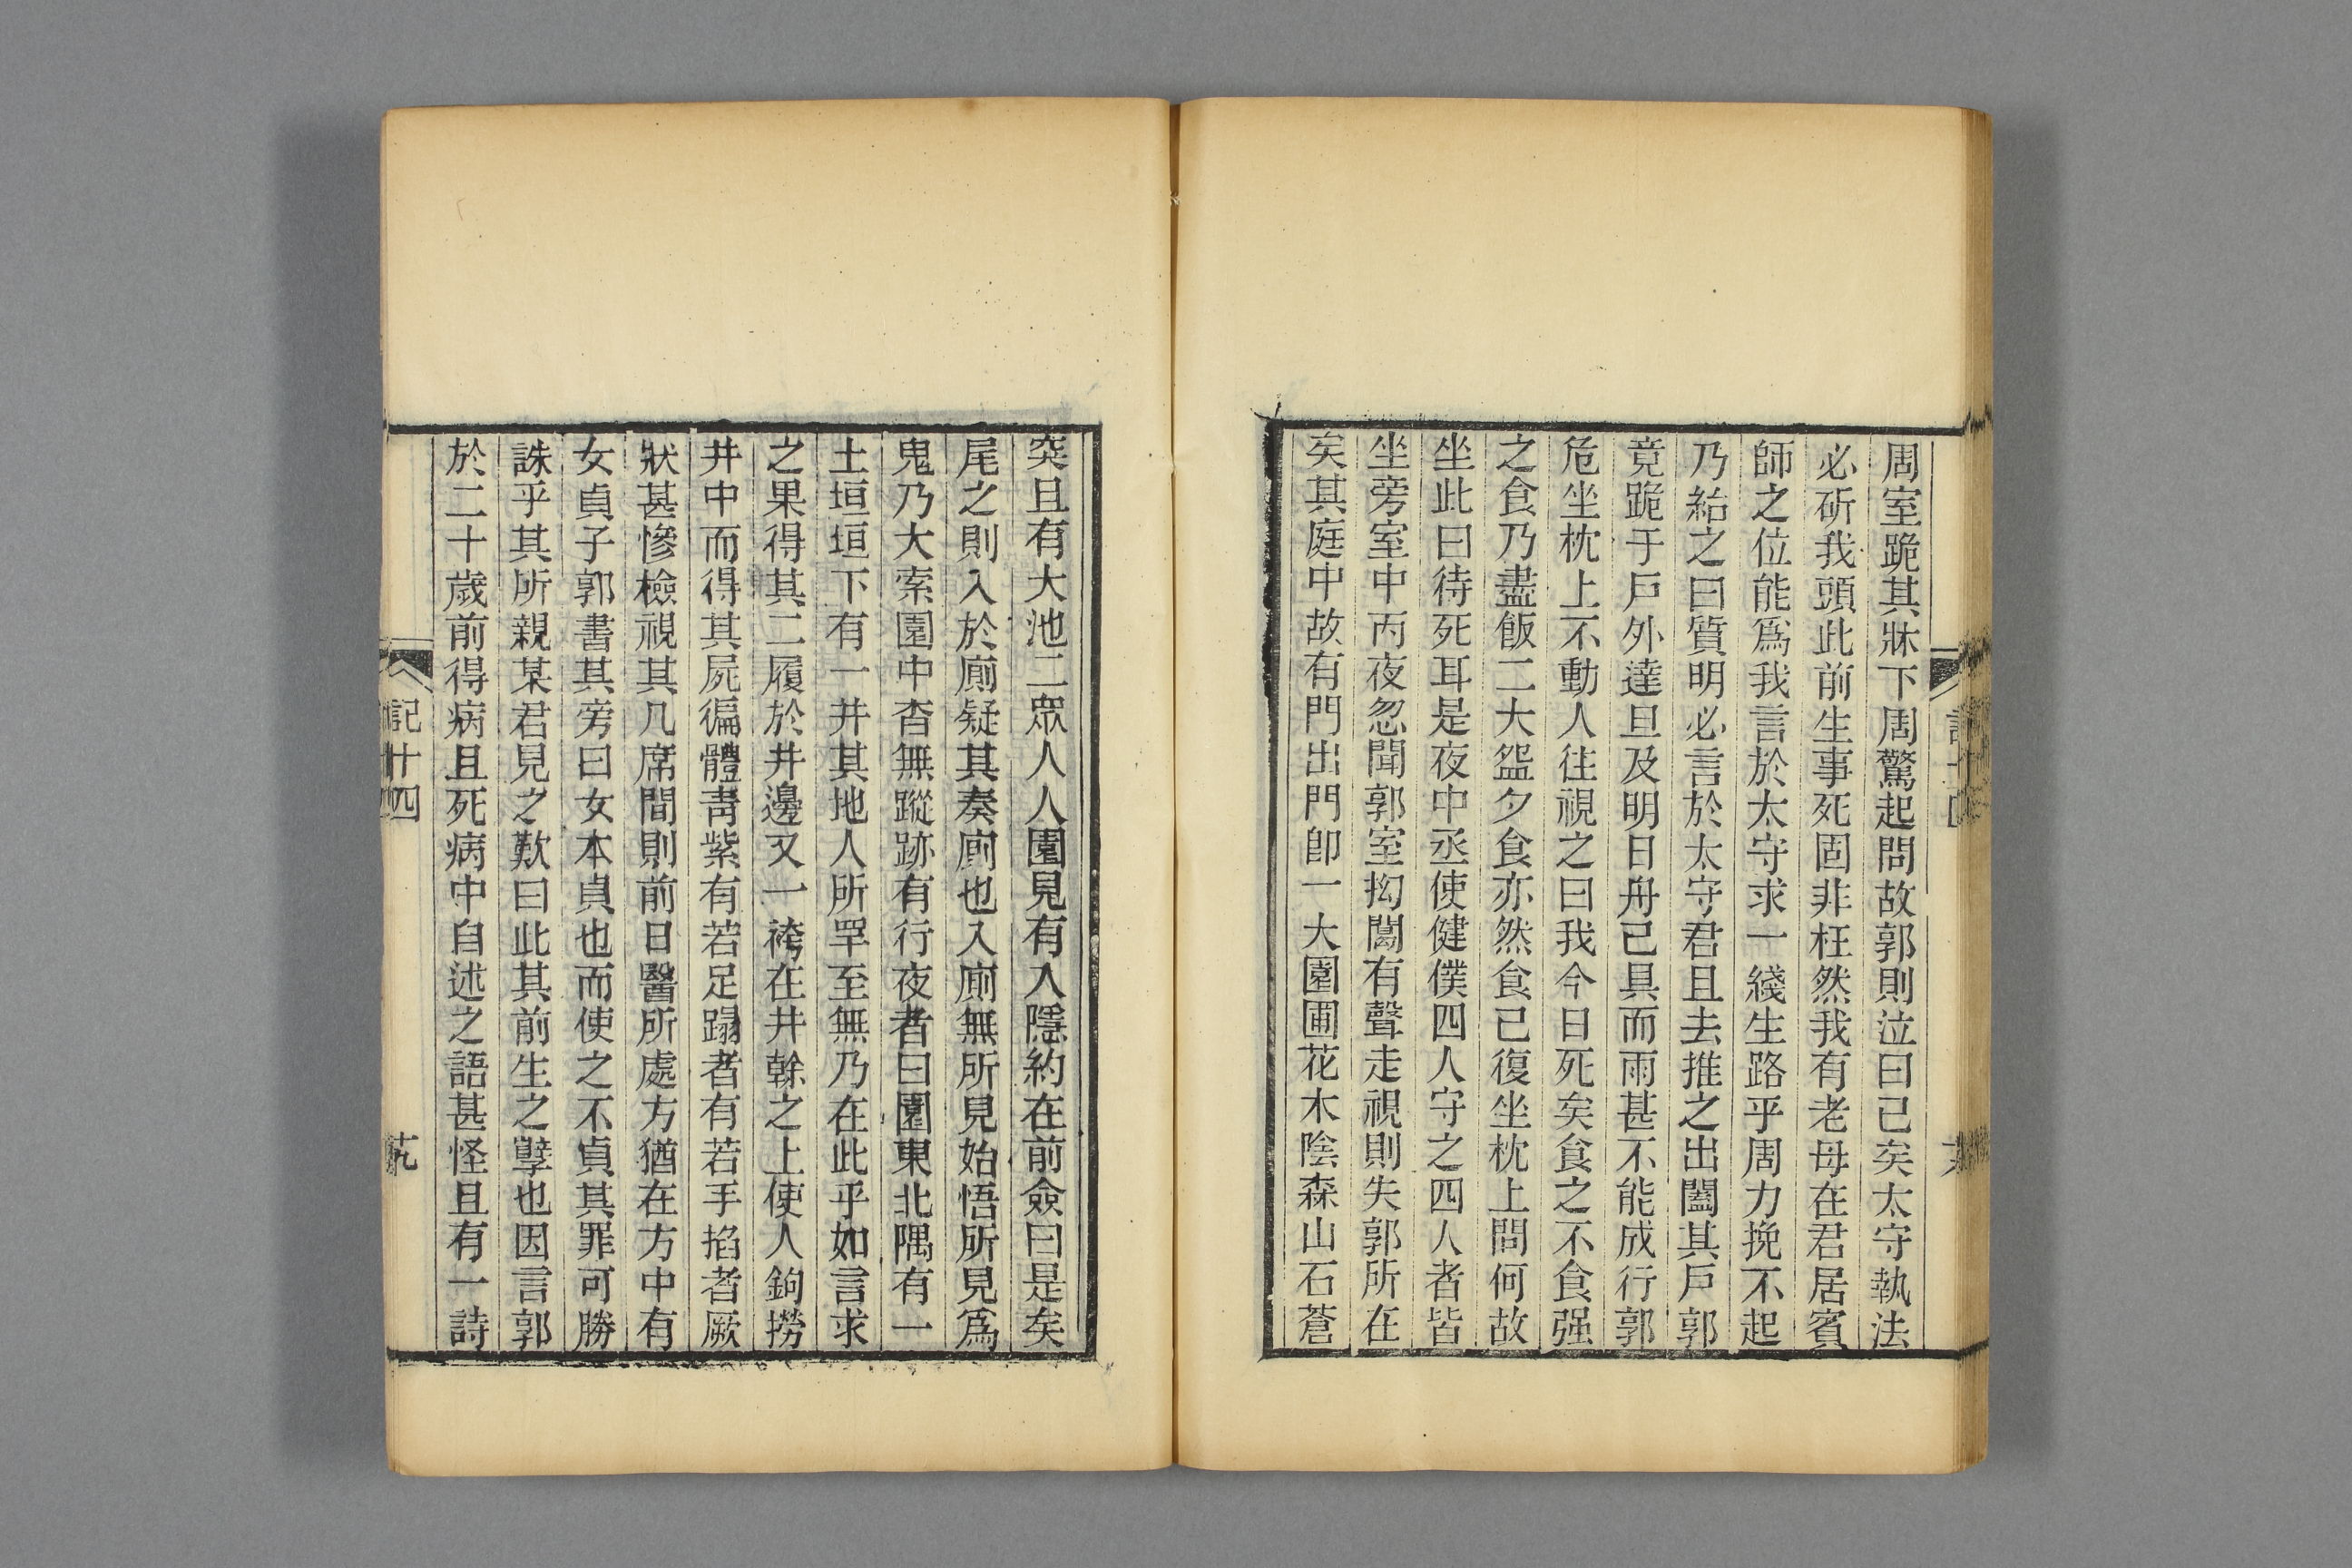 周室跪其牀下周驚起問故郭則泣曰已矣太守執法
必斫我頭此前生事死固非枉然我有老母在君居賓
師之位能爲我言於太守求一綫生路乎周力挽不起
乃紿之曰質明必言於太守君且去推之出闔其戶郭
竟跪于戶外達旦及明日舟已具而雨甚不能成行郭
危坐枕上不動人往視之曰我今日死矣食之不食强
之食乃盡飯二大盌夕食亦然食已復坐枕上問何故
坐此曰待死耳是夜中丞使健僕四人守之四人者皆
坐旁室中丙夜忽聞郭室拗闥有聲走視則失郭所在
矣其庭中故有門出門卽一大園圃花木陰森山石蒼
突且有大池二眾人人園見有人隱約在前僉曰是矣
尾之則入於廁疑其奏廁也入廁無所見始悟所見爲
鬼乃大索園中杳無蹤跡有行夜者曰園東北隅有一
土垣垣下有一井其地人所罕至無乃在此乎如言求
之果得其二履於井邊又一袴在井榦之上使人鉤撈
井中而得其屍徧體靑紫有若足蹋者有若手掐者厥
狀甚慘檢視其几席間則前日醫所處方猶在方中有
女貞子郭書其旁曰女本貞也而使之不貞其罪可勝
誅乎其所親某君見之歎曰此其前生之孼也因言郭
於二十歲前得病且死病中自述之語甚怪且有一詩
記十四